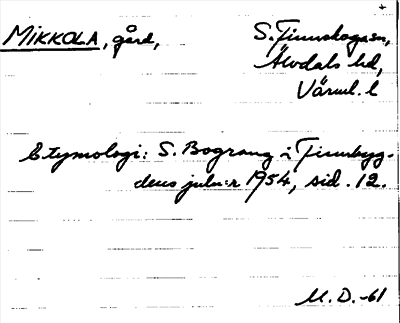 MIKKOLA, gård, S. Finnskoga sn,
Älvdals hd,
Värml. l
Etymologi: S. Bograng i Finnbyg-
dens julnr 1954, sid. 12.
M. D. -61